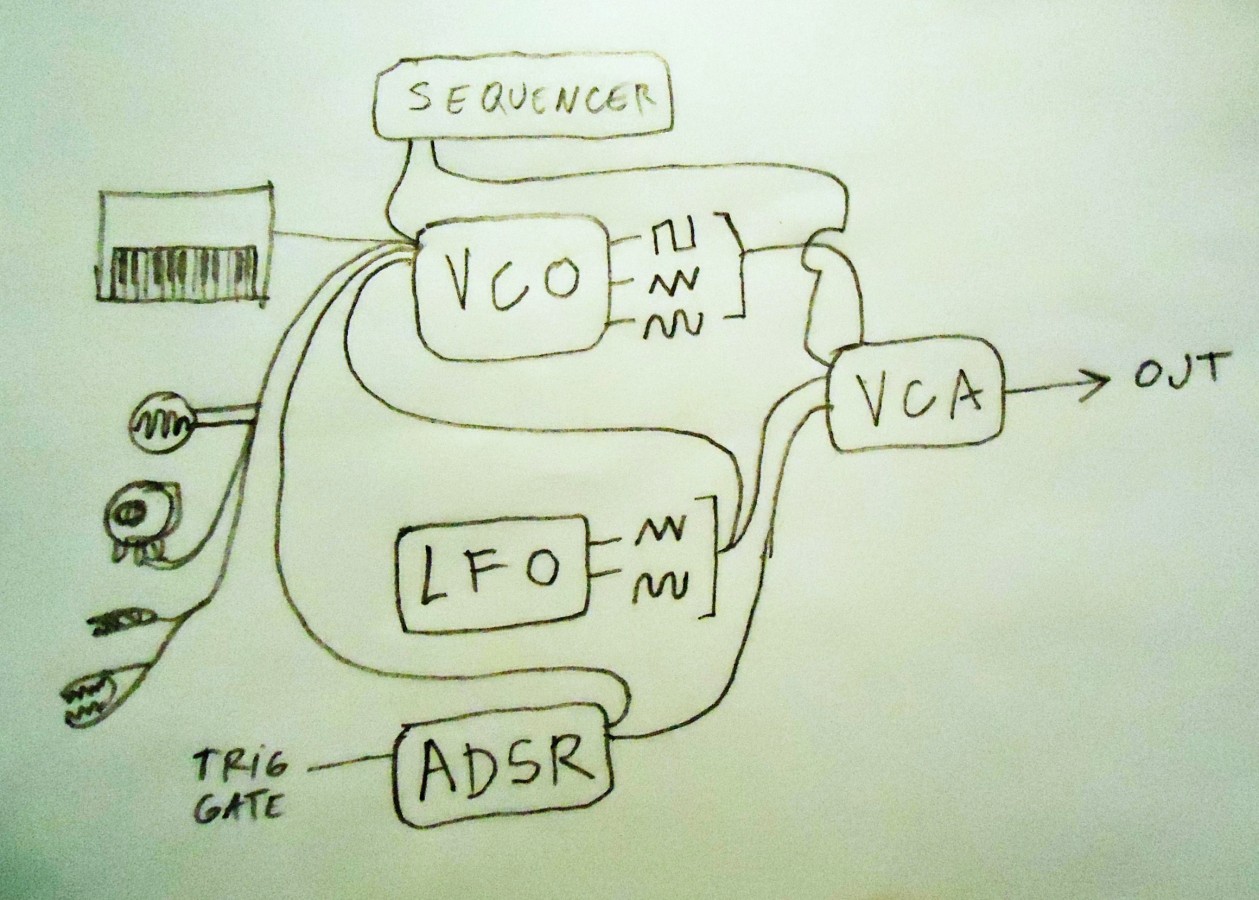 SEQUENCER
VCO
VCA
OUT
LFO
ADSR
TRIG
GATE